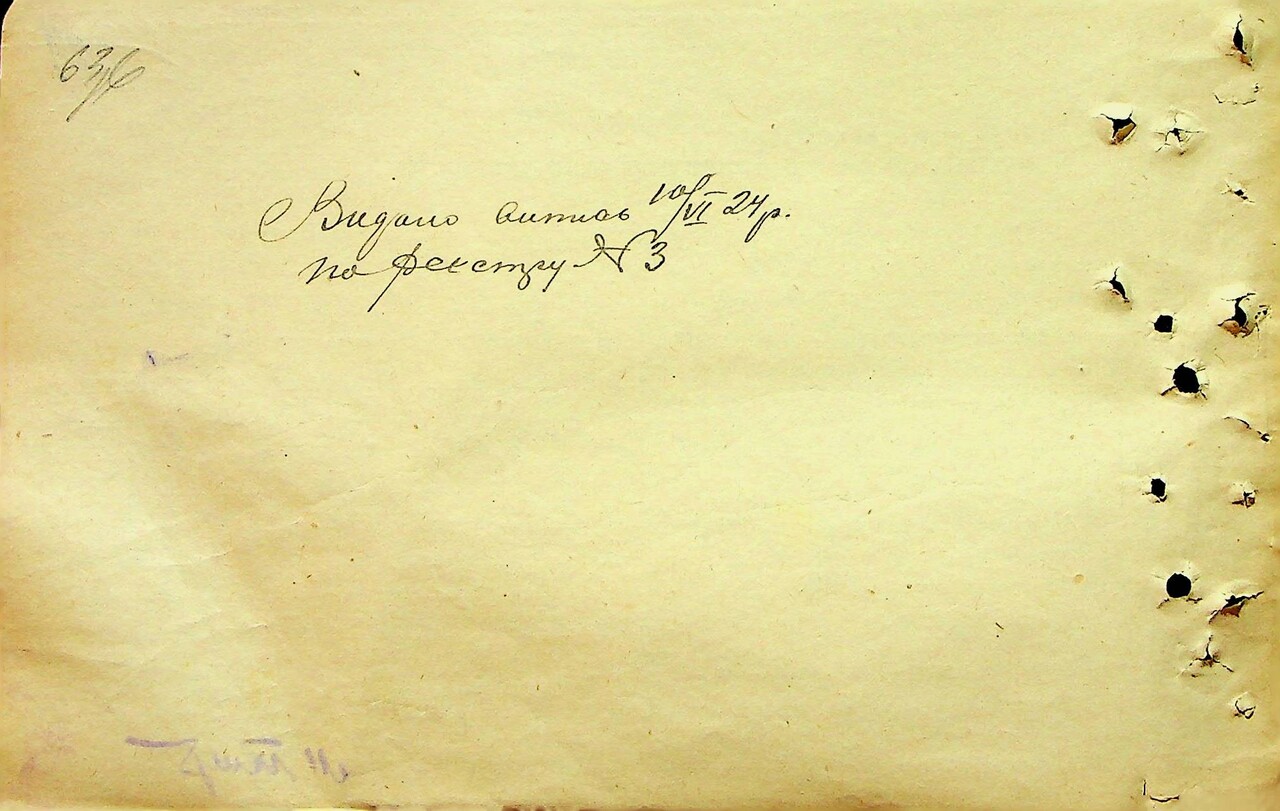 63б
Видано витпсь 10/VI 24 р.
по реестру N 3